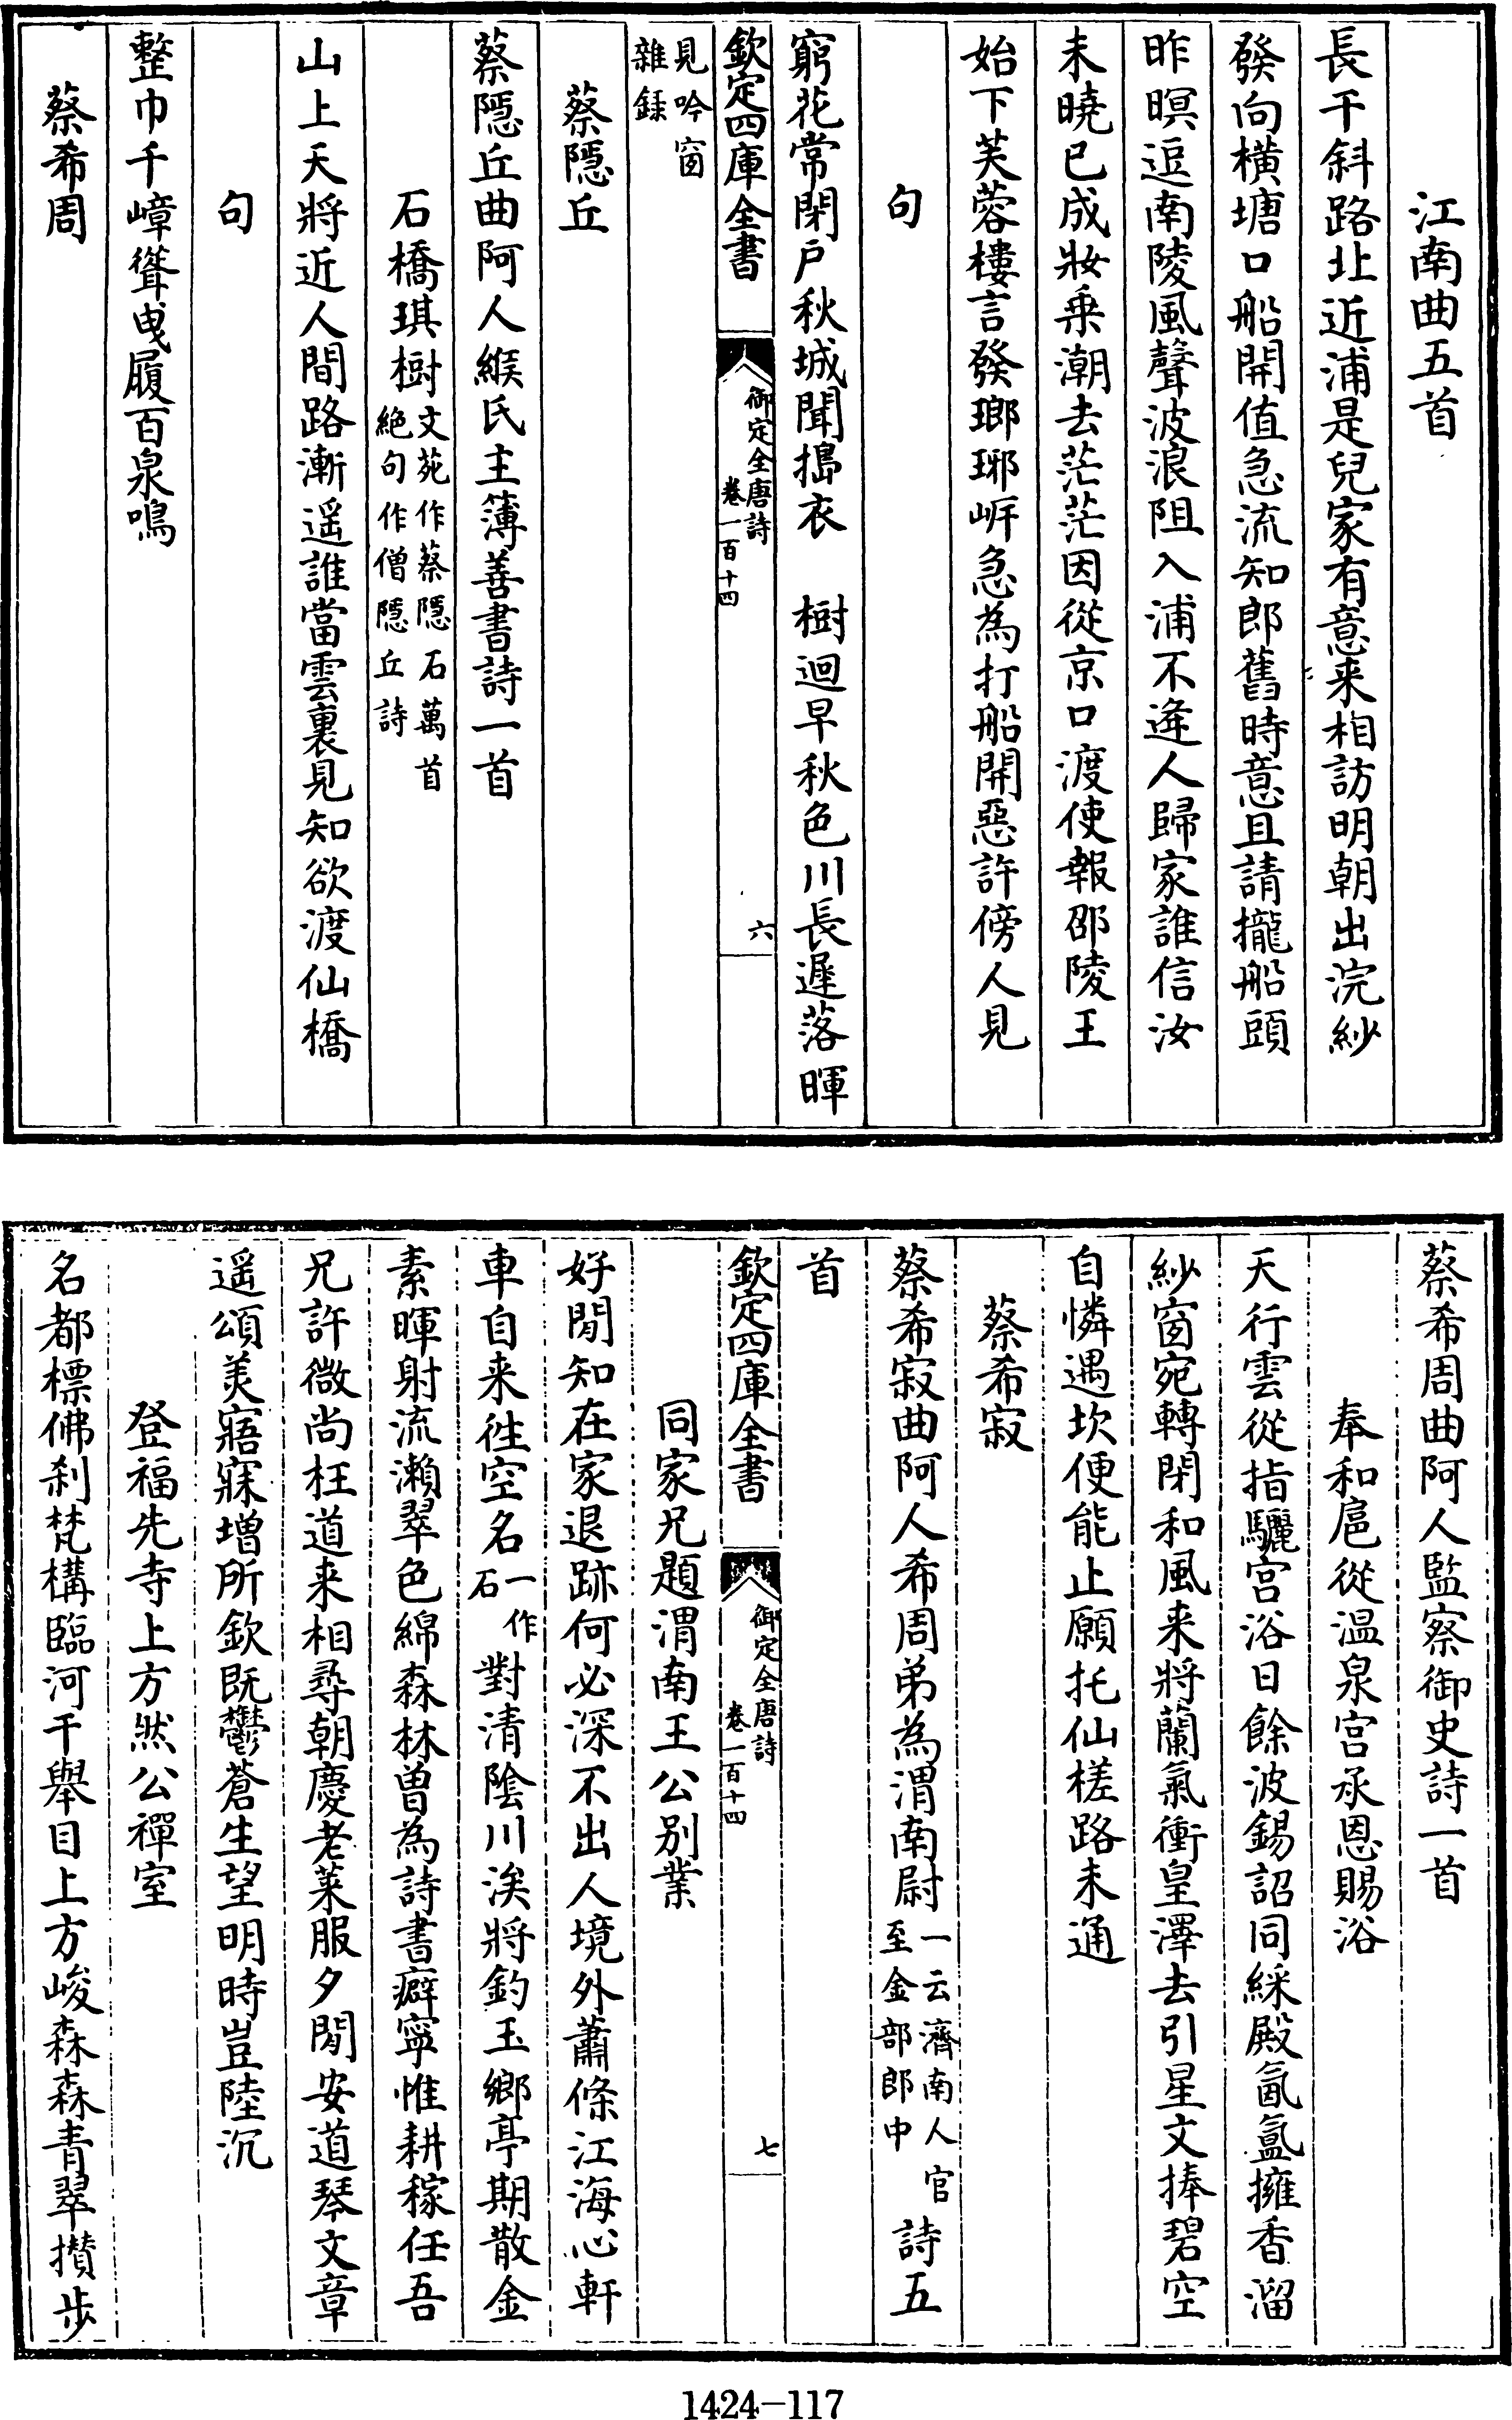 江南曲五首
長干斜路北近浦是兒家有意来相訪明朝出浣紗
發向橫塘口船開值急流知郎舊時意且請攏船頭
昨暝逗南陵風聲波浪阻入浦不逢人歸家誰信汝
未曉已成妝乗潮去茫茫因從京口渡使報邵陵王
始下芙蓉樓言發瑯琊岍急為打船開惡許傍人見
句
窮花常閉戶秋城聞搗衣　樹迴早秋色川長遲落暉
欽定四庫全書
御定全唐詩
卷一百十四
六
見吟窗
雜録
蔡隱丘
蔡隱丘曲阿人緱氏主簿善書詩一首
石橋琪樹文苑作蔡隱石萬首
絶句作僧隱丘詩
山上天將近人間路漸遥誰當雲裏見知欲渡仙橋
句
整巾千嶂聳曳履百泉鳴
蔡希周
蔡希周曲阿人監察御史詩一首
奉和扈從温泉宫承恩賜浴
天行雲從指驪宫浴日餘波錫詔同綵殿氤氳擁香溜
紗窗宛轉閉和風来將蘭氣衝皇澤去引星文捧碧空
自憐遇坎便能止願托仙槎路未通
蔡希寂
蔡希寂曲阿人希周弟為渭南尉一云濟南人官
至金部郎中詩五
首
欽定四庫全書
御定全唐詩
卷一百十四
七
同家兄題渭南王公别業
好閒知在家退跡何必深不出人境外蕭條江海心軒
車自来徃空名一作
石對清陰川涘將釣玉鄉亭期散金
素暉射流瀨翠色綿森林曽為詩書癖寜惟耕稼任吾
兄許微尚枉道来相尋朝慶老萊服夕閒安道琴文章
遥頌美寤寐増所欽既鬱蒼生望明時豈陸沉
登福先寺上方然公禪室
名都標佛刹梵構臨河干舉目上方峻森森青翠攢步
1424-117